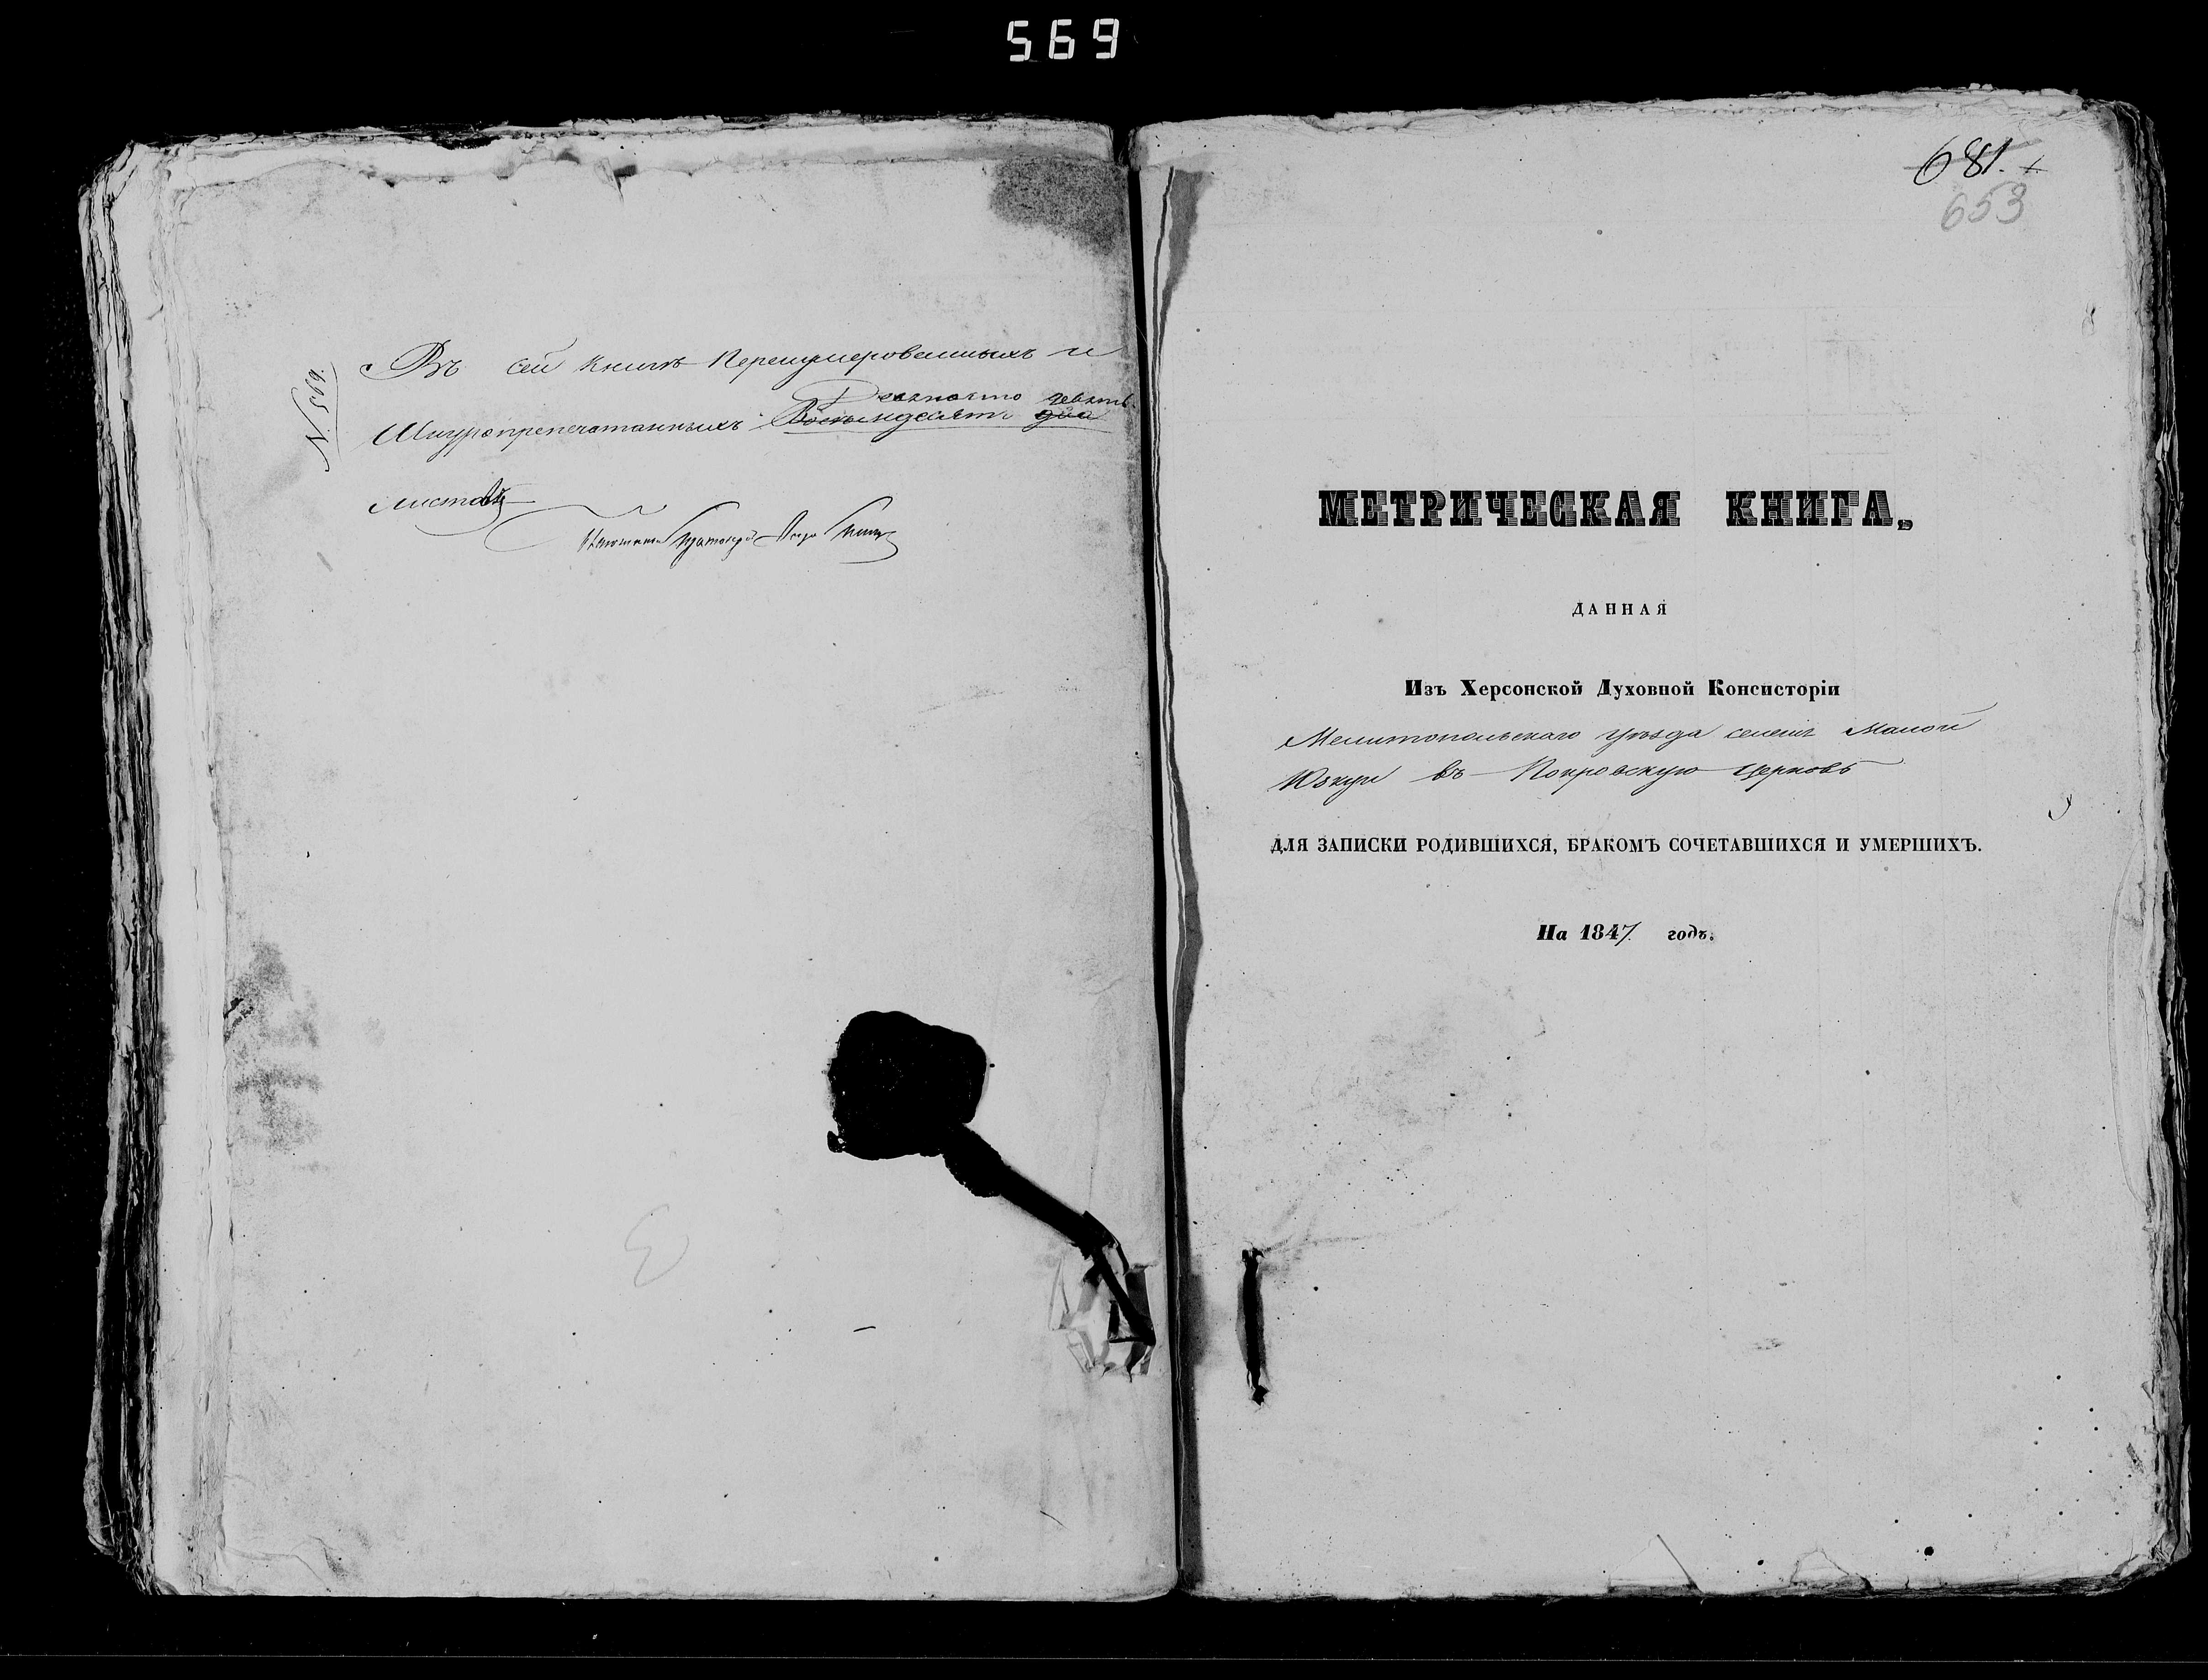 569
N. 569.
Въ сей книгѣ перенумерованныхъ и
Девяносто девять
Шнуропрепечатанныхъ Восемьдесят два
листовъ
681.
653
МЕТРИЧЕСКАЯ КНИГА,
ДАННАЯ
Изъ Херсонской Духовной Консисторіи
Мелитопольскаго уѣзда селенія Малой
Юзкуи въ Покровскую церковь
ДЛЯ ЗАПИСКИ РОДИВШИХСЯ, БРАКОМЪ СОЧЕТАВШИХСЯ И УМЕРШИХЪ.
На 1847. годъ.